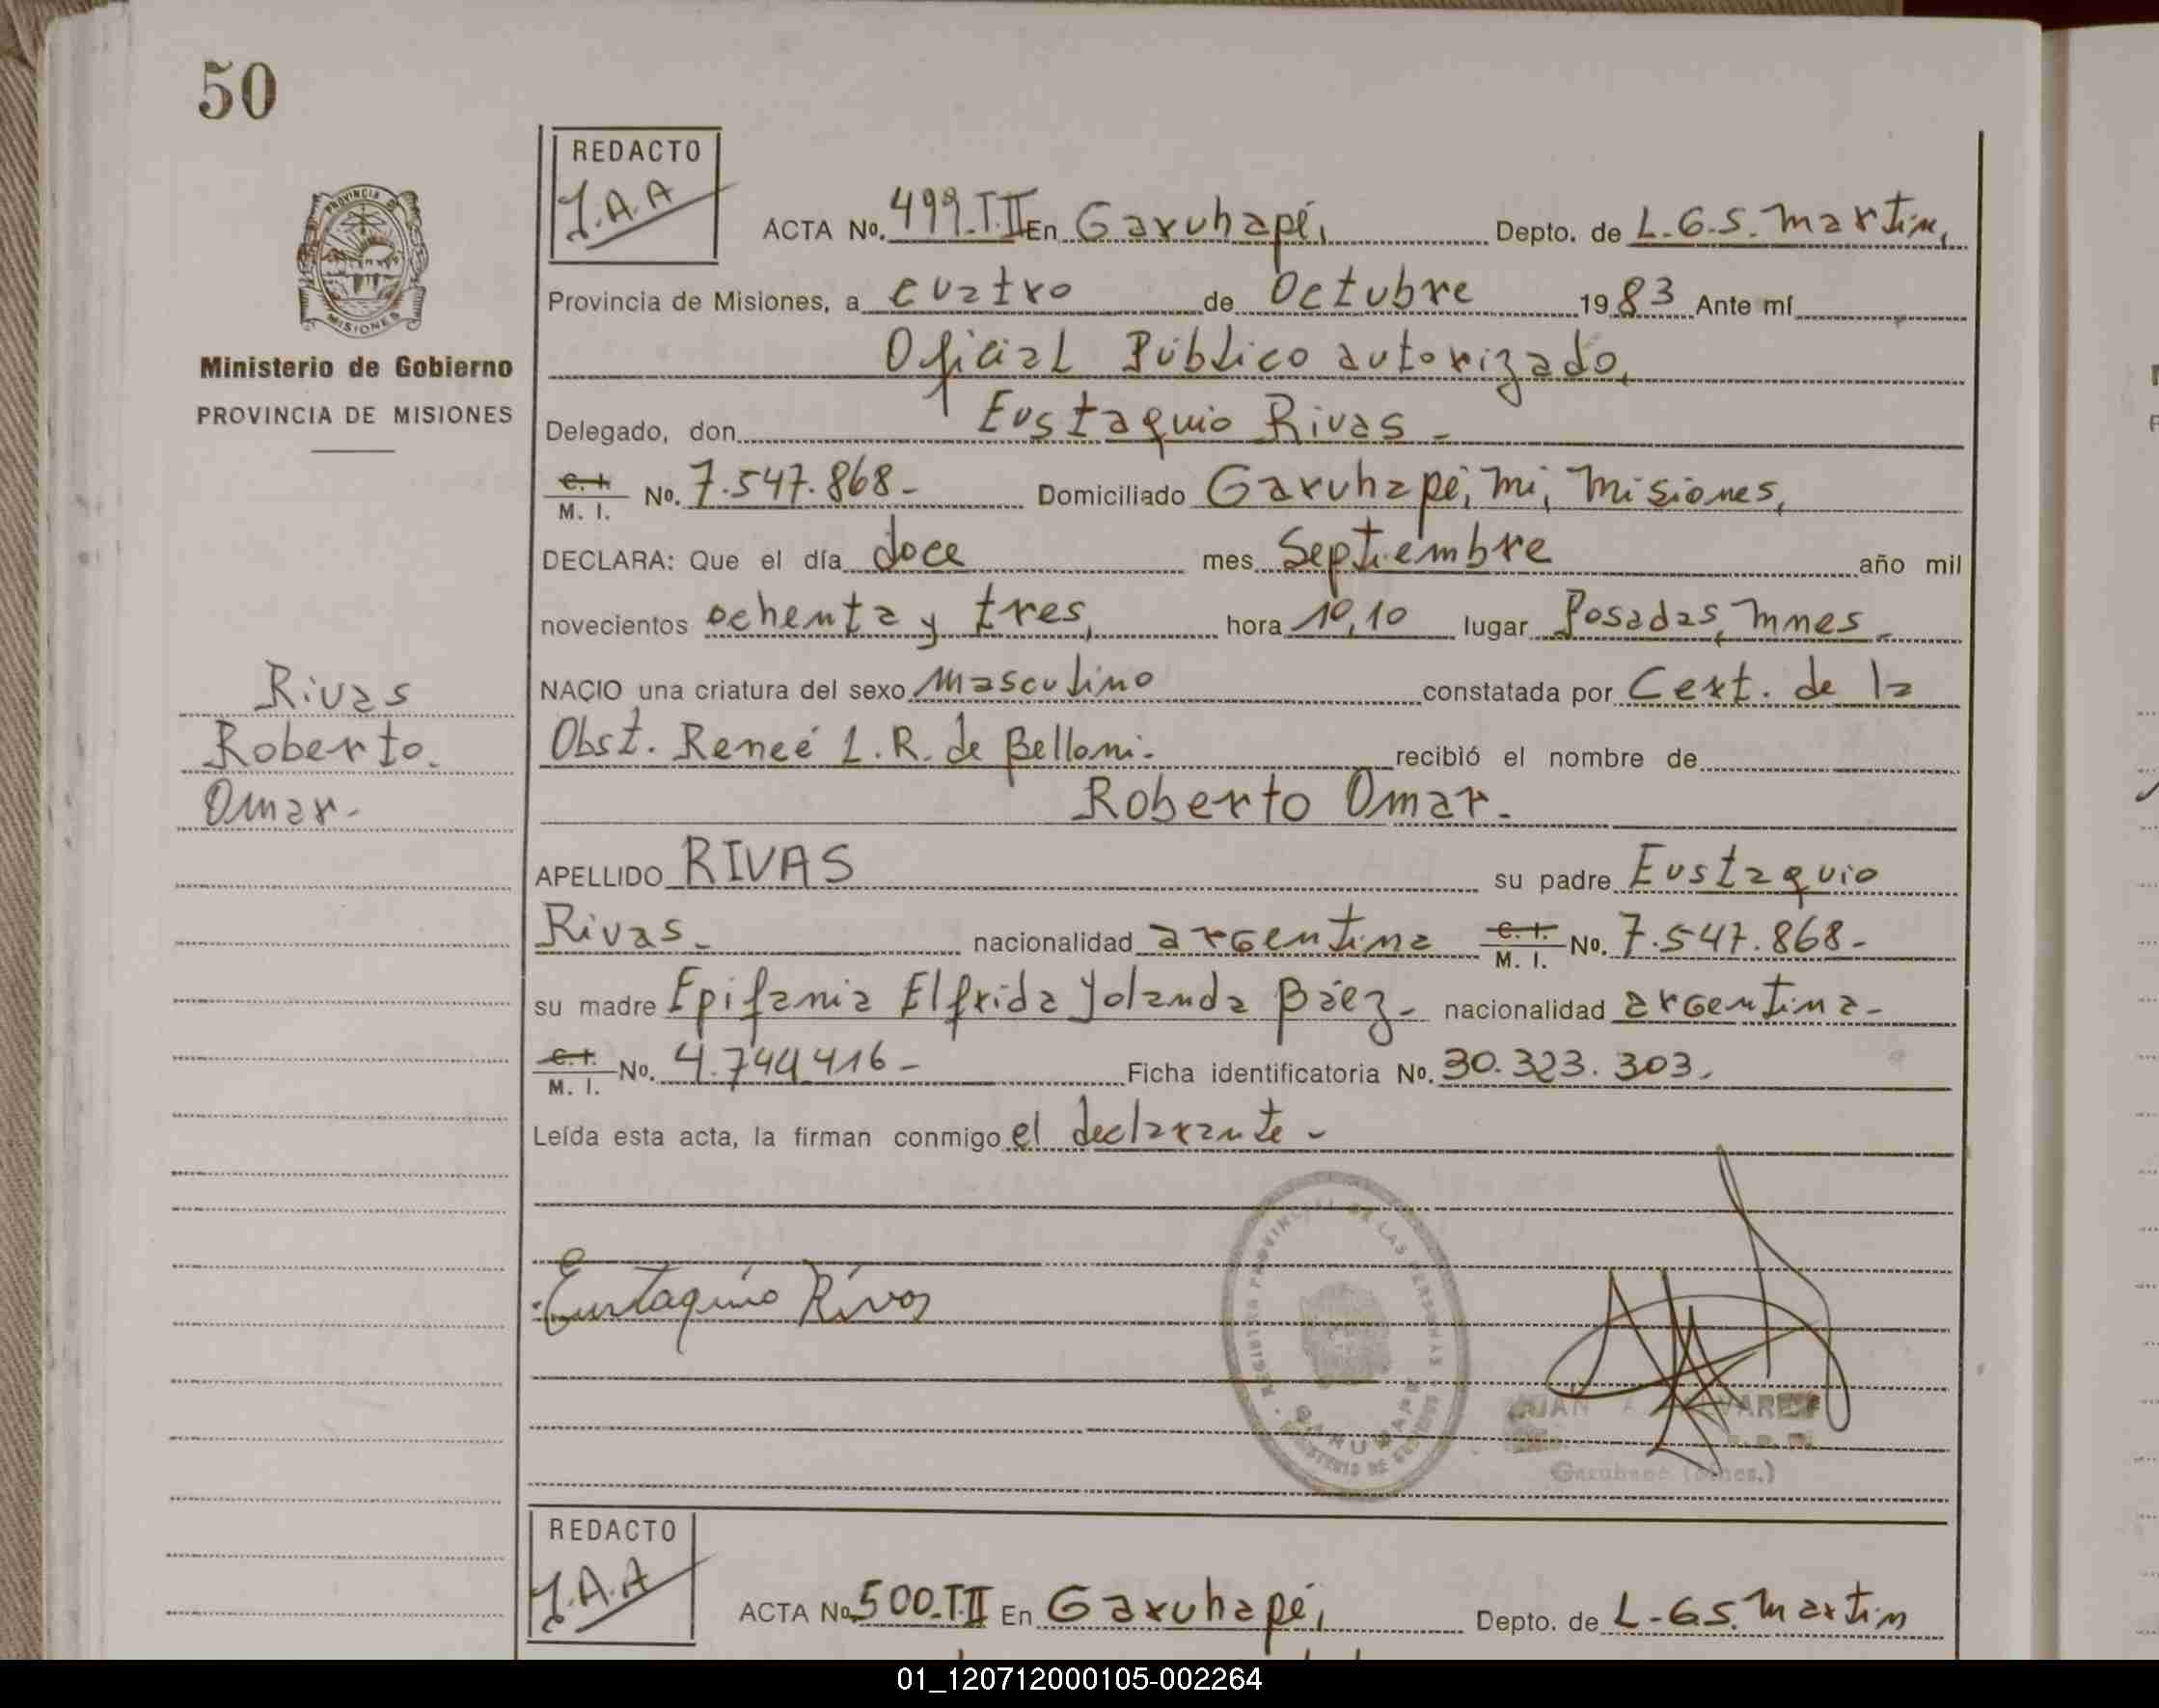 50
REDACTO
J.A.A
PROVINCIA DE
MISIONES
Ministerio de Gobierno
PROVINCIA DE MISIONES
ACTA No. 499.T.II En Garuhapé, Depto. de L.G.S. Martin,
Provincia de Misiones, a cuatro de Octubre 1983 Ante mí
Oficial Público autorizado,
Delegado, don Eustaquio Rivas -
C. I. M. I. No. 7.547.868- Domiciliado Garuhapé, mi, Misiones,
DECLARA: Que el día doce mes Septiembre año mil
novecientos ochenta y tres, hora 10,10 lugar Posadas, Mnes.
NACIO una criatura del sexo masculino constatada por Cert. de la
Obst. Reneé L.R. de Belloni.- recibió el nombre de
Roberto Omar.-
Rivas
Roberto.
Omar-
APELLIDO RIVAS su padre Eustaquio
Rivas.- nacionalidad argentina C. I. M. I. No. 7.547.868-
su madre Epifania Elfrida Yolanda Báez- nacionalidad argentina-
C. I. M. I. No. 4.744.416- Ficha identificatoria No. 30.323.303.
Leída esta acta, la firman conmigo el declarante-
Eustaquio Rivas
REGISTRO PROVINCIAL DE LAS PERSONAS
GARUHAPE
MINISTERIO DE GOBIERNO
JUAN A. ALVAREZ
Garuhapé (Mnes.)
REDACTO
J.A.A
ACTA No. 500.T.II En Garuhapé, Depto. de L-GS. Martin
01_120712000105-002264